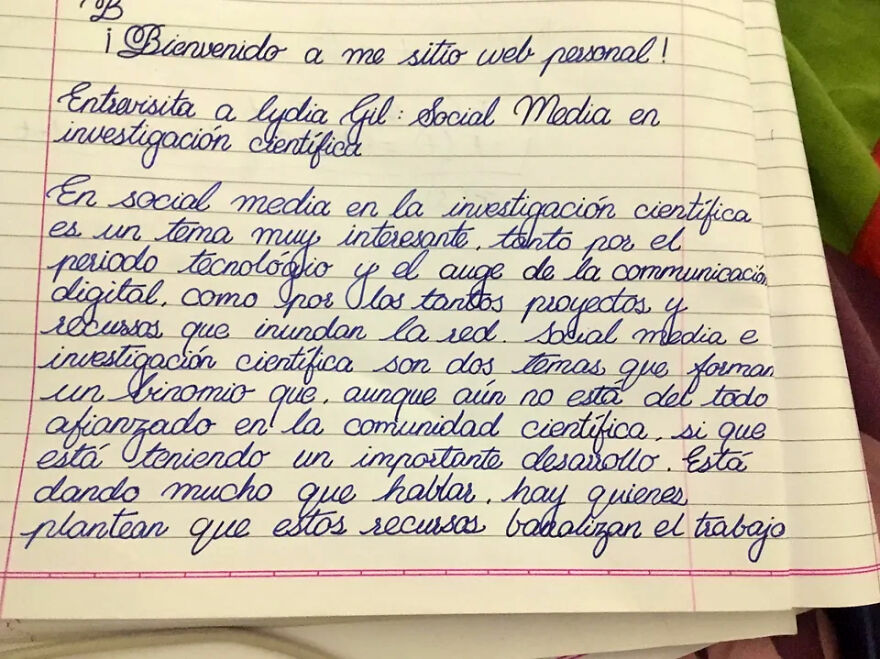 B
¡Bienvenido a me sitio web personal!
Entrevisita a lydia Gil: Social Media en
investigación científica
En social media en la investigación científica
es un tema muy interesante, tanto por el
periodo tecnológio y el auge de la communicación
digital, como por los tantos proyectos y
recursos que inundan la red. Social media e
investigación científica son dos temas que forman
un binomio que, aunque aún no está del todo
afianzado en la comunidad científica, si que
está teniendo un importante desarollo. Está
dando mucho que hablar, hay quienes
plantean que estos recursos banalizan el trabajo